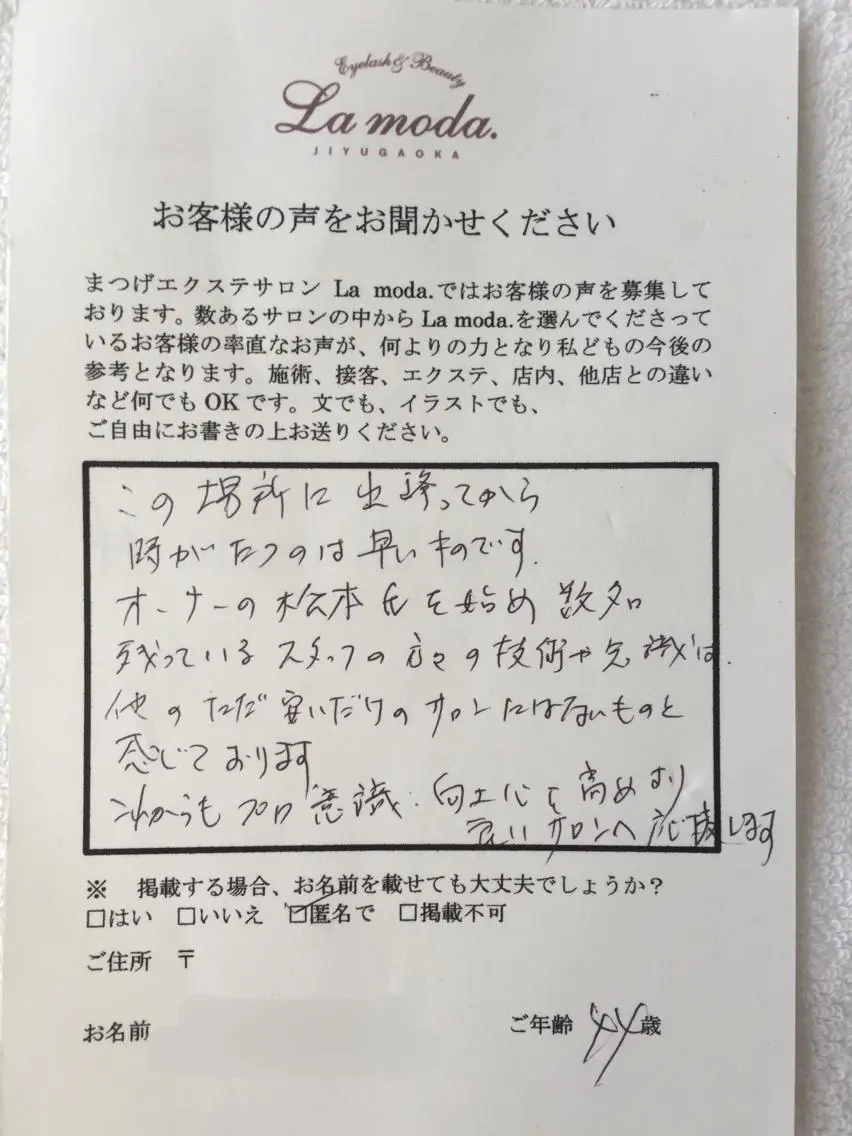 Eyelash & Beauty
La moda.
JIYUGAOKA
お客様の声をお聞かせください
まつげエクステサロン La moda.ではお客様の声を募集して
おります。数あるサロンの中から La moda.を選んでくださって
いるお客様の率直なお声が、何よりの力となり私どもの今後の
参考となります。施術、接客、エクステ、店内、他店との違い
など何でも OK です。文でも、イラストでも、
ご自由にお書きの上お送りください。
この場所に出逢ってから
時がたつのは早いものです.
オーナーの松本氏を始め数名
残っているスタッフの方々の技術や知識は.
他のただ安いだけのサロンにはないものと
感じております
これからもプロ意識.向上心を高めより
良いサロンへ応援します
※ 掲載する場合、お名前を載せても大丈夫でしょうか？
□はい □いいえ ☑匿名で □掲載不可
ご住所 〒
お名前 ご年齢 44歳